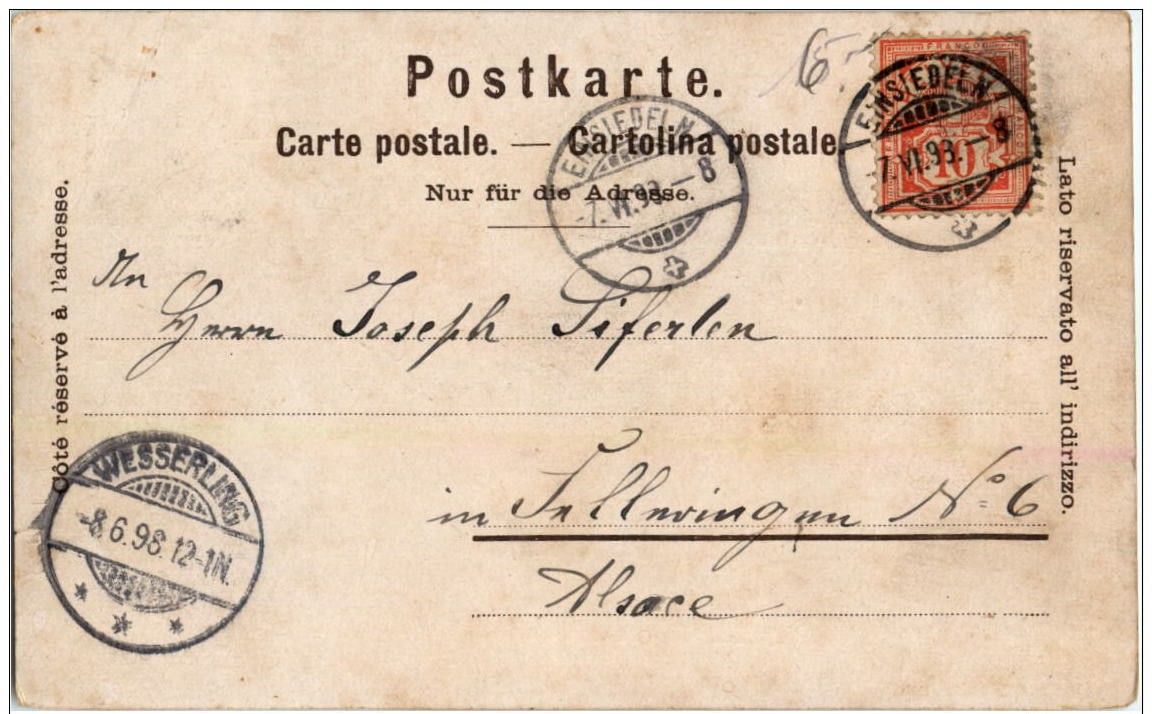 Postkarte.
Carte postale. — Cartolina postale.
Nur für die Adresse.
Côté réservé à l'adresse.
Lato riservato all' indirizzo.
6.-
FRANCO
10
EINSIEDELN
7.VI.98.—8
EINSIEDELN
-7.VI.98.—8
An
Herrn Joseph Siferlen
in Felleringen No 6
Alsace
WESSERLING
-8.6.98.12-1N.